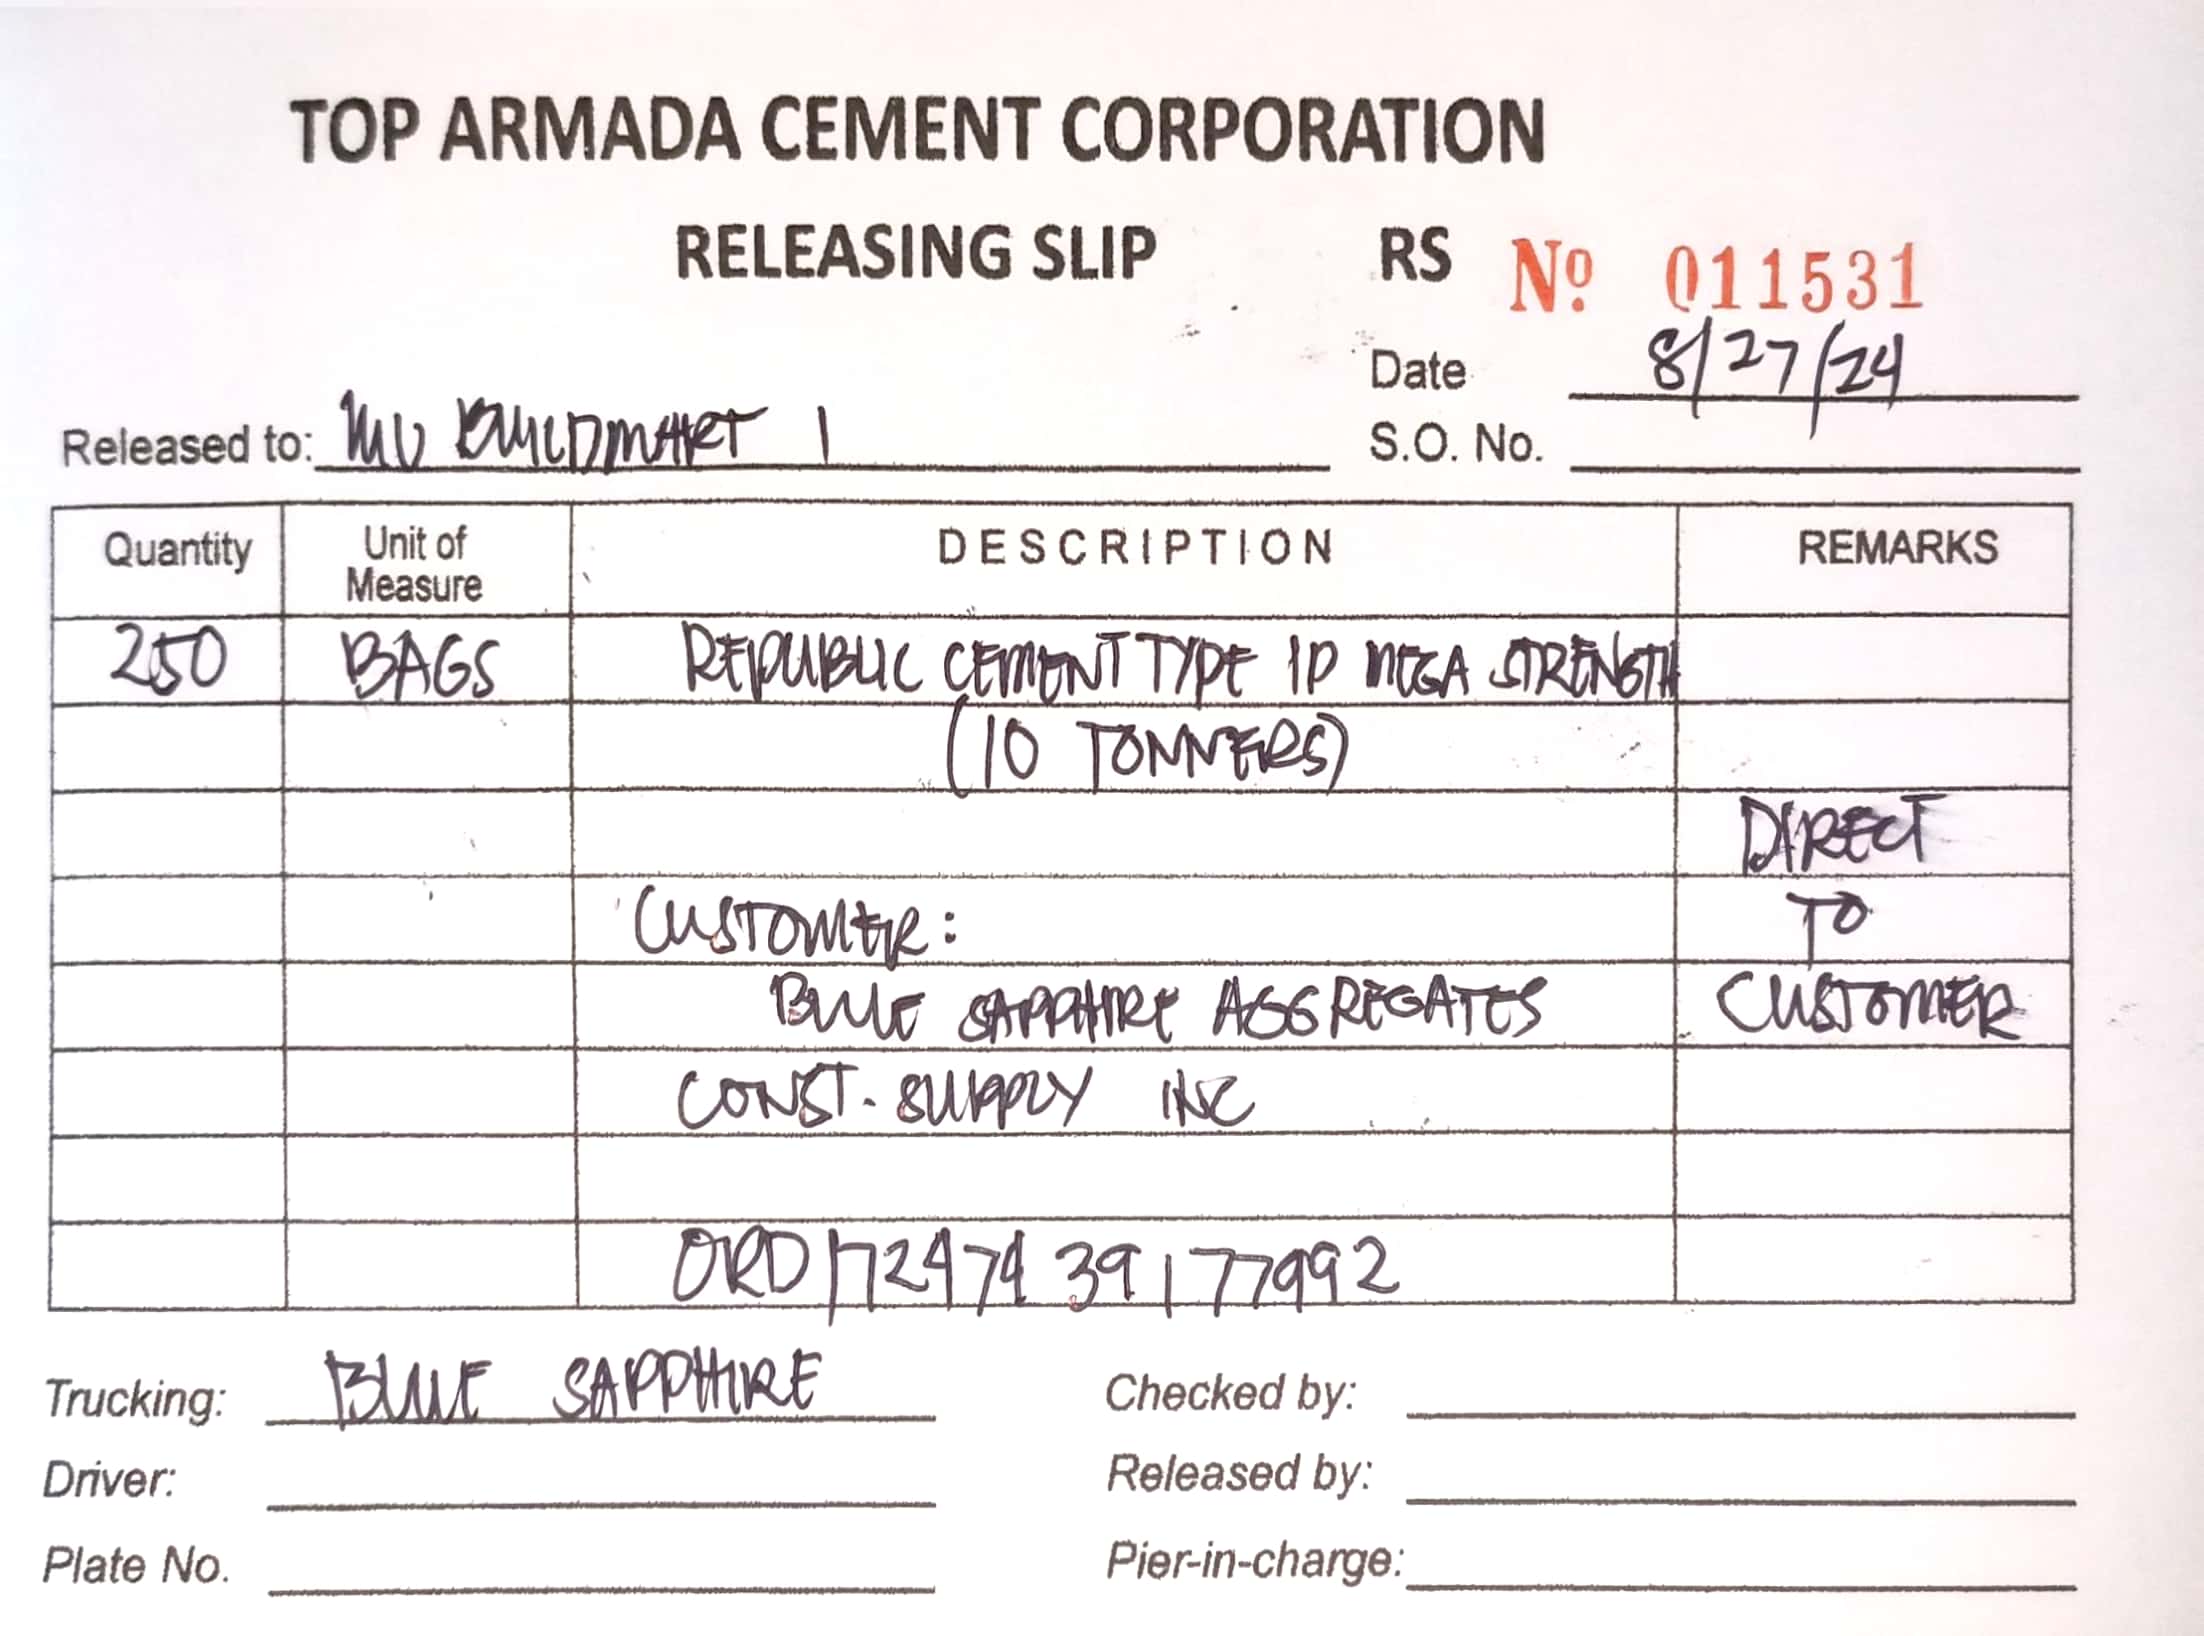 TOP ARMADA CEMENT CORPORATION
RELEASING SLIP RS Nº 011531
Date 8/27/24
Released to: MV BUILDMART 1 S.O. No.
Quantity Unit of Measure DESCRIPTION REMARKS
250 BAGS REPUBLIC CEMENT TYPE 1P MEGA STRENGTH
(10 TONNERS)
DIRECT
CUSTOMER: TO
BLUE SAPPHIRE AGGREGATES CUSTOMER
CONST. SUPPLY INC
ORD17247439177992
Trucking: BLUE SAPPHIRE Checked by:
Driver: Released by:
Plate No. Pier-in-charge: